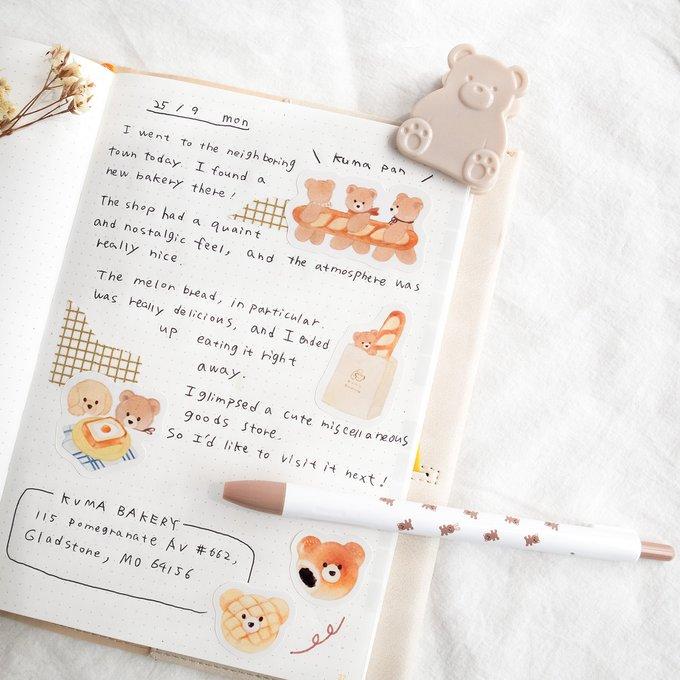 25 / 9 mon
\ Kuma pan /
I went to the neighboring
town today. I found a
new bakery there!
The shop had a quaint
and nostalgic feel, and the atmosphere was
really nice.
The melon bread, in particular.
was really delicious, and I ended
up eating it right
away.
I glimpsed a cute miscellaneous
goods store.
So I'd like to visit it next!
KUMA BAKERY
115 Pomegranate AV #662,
Gladstone, MO 64156